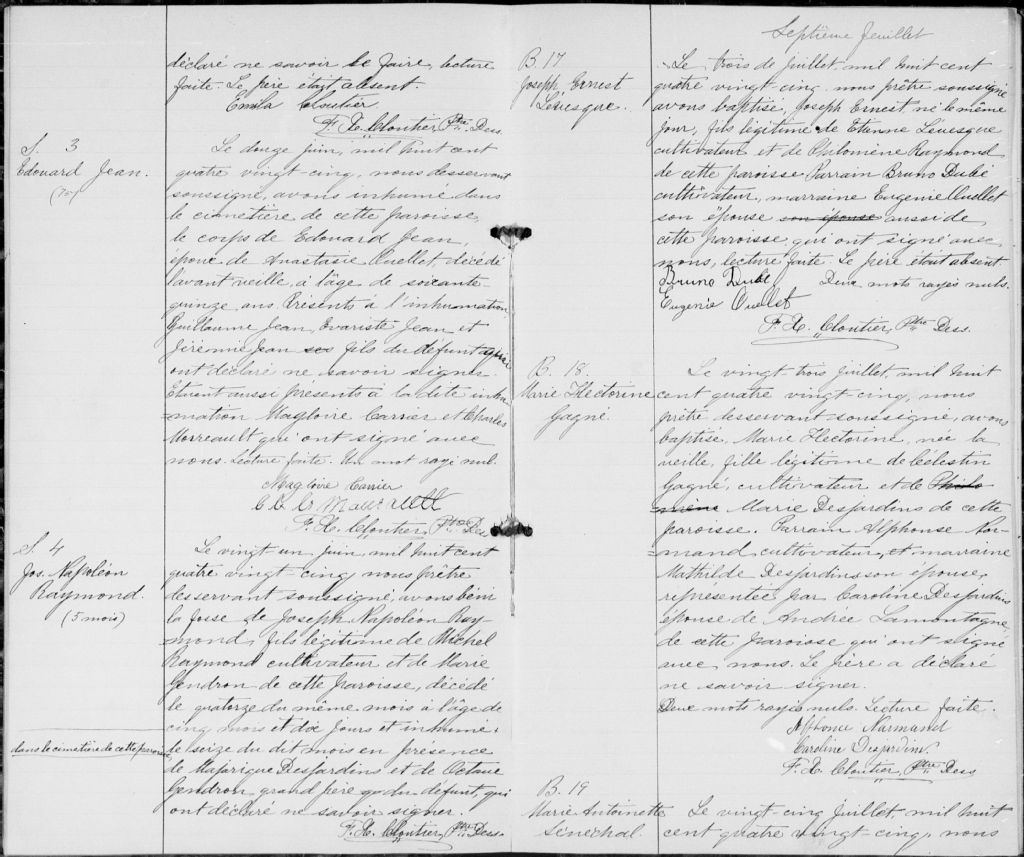 déclaré ne savoir le faire, lecture
faite. Le père était absent.
Emila Cloutier
F. X. Cloutier, Ptre Dess.
S. 3
Edouard Jean.
Le douze juin, mil huit cent
quatre vingt-cinq, nous desservant
soussigné, avons inhumé dans
le cimetière de cette paroisse,
le corps de Edouard Jean,
époux de Anastasie Ouellet, décédé
l'avant veille, à l'âge de soixante
quinze ans. Présents à l'inhumation,
Guillaume Jean, Evariste Jean et
Jérémie Jean ses fils du défunt qui
ont déclaré ne savoir signer.
Etaient aussi présents à la dite inhu-
mation Magloire Carrier et Charles
Morreault qui ont signé avec
nous. Lecture faite. Un mot rayé nul.
Magloire Carrier
F. X. Cloutier, Ptre Des
S. 4
Jos. Napoléon
Raymond.
(5 mois)
Le vingt un juin, mil huit cent
quatre vingt-cinq, nous prêtre
desservant soussigné, avons béni
la fosse de Joseph Napoléon Ray-
mond, fils légitime de Michel
Raymond cultivateur et de Marie
Gendron de cette paroisse, décédé
le quatorze du même mois à l'âge de
cinq mois et dix jours et inhumé
dans le cimetière de cette paroisse
le seize du dit mois en présence
de Majorique Desjardins et de Octave
Gendron grand père du défunt, qui
ont déclaré ne savoir signer.
F. X. Cloutier, Ptre Dess.
Septième feuillet
B. 17
Joseph Ernest
Lévesque.
Le trois de juillet, mil huit cent
quatre vingt-cinq, nous prêtre soussigné
avons baptisé, Joseph Ernest né le même
jour, fils légitime de Etienne Lévesque
cultivateur et de Philomène Raymond
de cette paroisse, Parrain Bruno Dubé
cultivateur, marraine Eugenie Ouellet
son épouse son épouse aussi de
cette paroisse, qui ont signé avec
nous, lecture faite. Le père était absent
Bruno Dubé Deux mots rayés nuls.
Eugenie Ouellet
F. X. Cloutier, Ptre Dess.
B. 18.
Marie Hectorine
Gagné.
Le vingt trois juillet, mil huit
cent quatre vingt-cinq, nous
prêtre desservant soussigné, avons
baptisé, Marie Hectorine, née la
veille, fille légitime de Célestin
Gagné, cultivateur et de Philo
mène Marie Desjardins de cette
paroisse. Parrain Alphonse Nor-
mand cultivateur, et marraine
Mathilde Desjardins son épouse,
représentée par Caroline Desjardins
épouse de Andrée Lamontagne,
de cette paroisse qui ont signé
avec nous. Le père a déclaré
ne savoir signer.
Deux mots rayés nuls. Lecture faite.
Alphonse Narmand
Caroline Desjardins
F. X. Cloutier, Ptre Dess
B. 19
Marie Antoinette
Sénéchal.
Le vingt-cinq juillet, mil huit
cent quatre vingt-cinq, nous